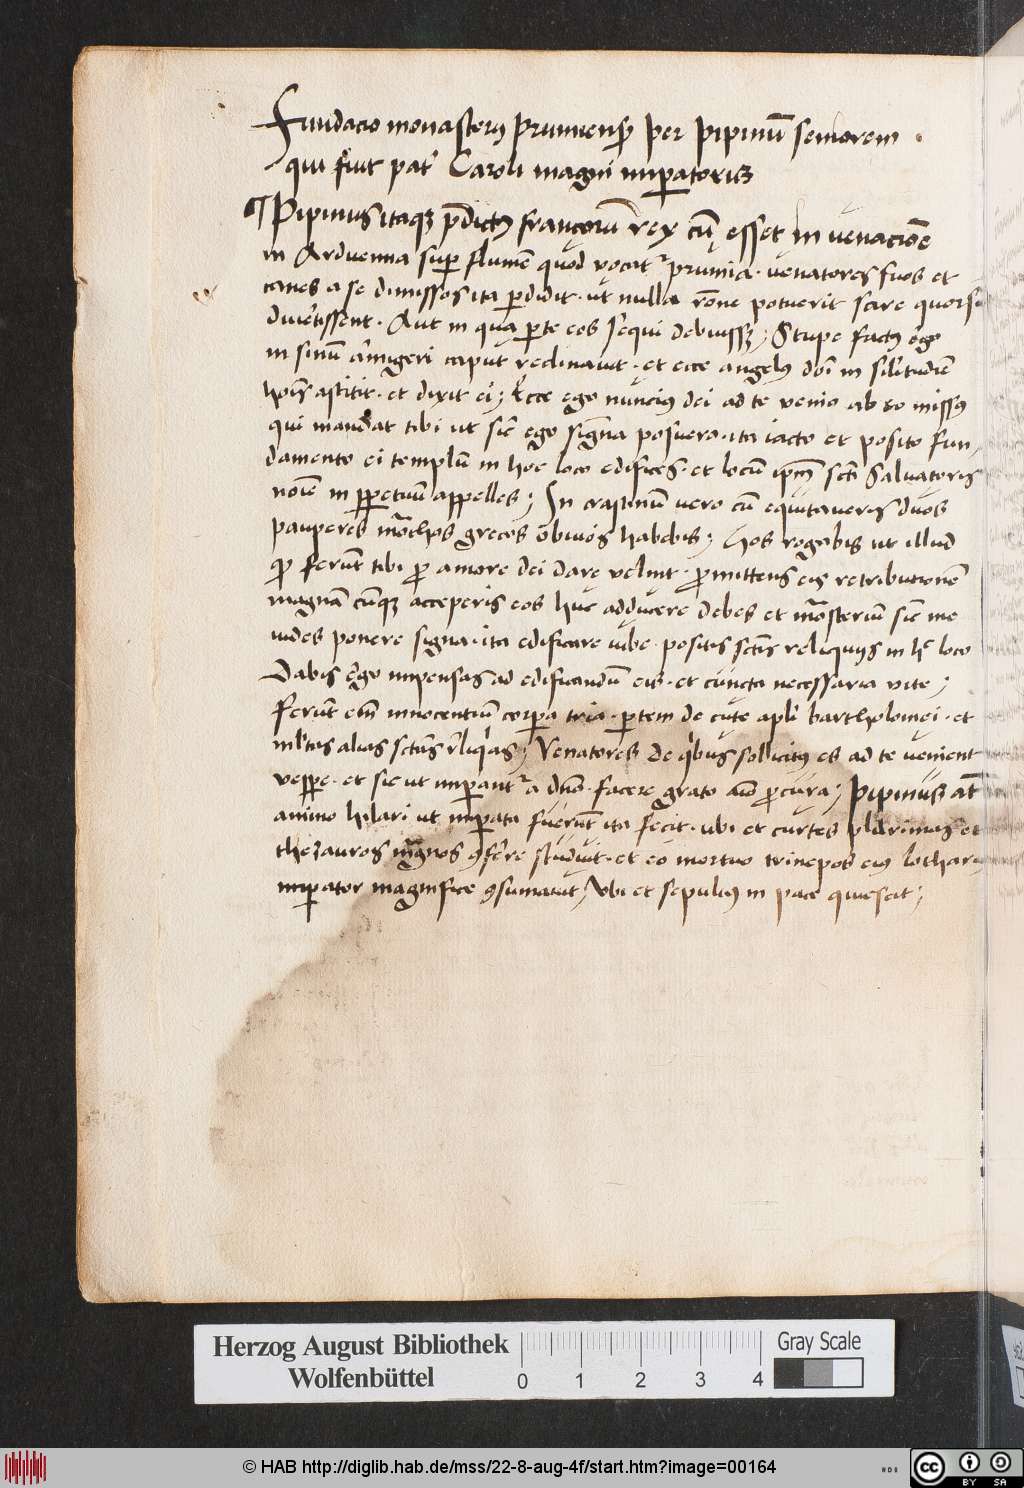 Fundacio monasterij prumiensis per Pipinū seniorem
qui fuit pat' Caroli magni imperatoris
¶ Pipinus itaqз p̄dict9 francorū rex cū esset in venacione
in Arduenna sup flumē quod vocat' prumia · venatores suos et
canes a se dimissos ita perdidit · ut nulla rōne potuerit scire quorsū
divertissent · Aut in qua parte eos sequi debuissз; Stupefact9 ergo
in sinū armigeri caput reclinavit · et ecce angel9 dn̄i in similitudīe
hoīs astitit · et dixit ei; Ecce ego nuncius dei ad te venio ab eo miss9
qui mandat tibi ut sic̄ ego signa posuero · ita iacto et posito fun,
damento ei templū in hoc loco edifices · et locū ipm̄ scti Salvatoris
noīe in perpetuū appelles; In crastinū vero cū equitaveris duos
pauperes mōchos grecos obvios habebis; Hos rogabis ut illud
qd ferūt tibi pro amore dei dare velint · promittens eis retributionē
magnā cūqз acceperis eos huc adducere debes et mōasteriū sic̄ me
vides ponere signa · ita edificare iube · positis sctīs reliquijs in hc loco
Dabis ergo impensas ad edificandū eis · et cuncta necessaria vite;
Ferūt em̄ innocentium corpora tria · partem de cute apli bartholomei · et
ml'tas alias sctās reliqas; Venatores de qibus sollicit9 es ad te venient
vespere · et sic ut imperant' a dn̄o · facere grato aīo procura; Pipinus at̄
animo hilari ut imperata fuerūt ita fecit · ubi et curtes plurimas et
thesauros magnos conferre studuit · et eo mortuo trinepos ei9 lotharij
imperator magnifice consumavit, Ubi et sepult9 in pace quiescit;
Herzog August Bibliothek
Wolfenbüttel
0 1 2 3 4
Gray Scale
© HAB http://diglib.hab.de/mss/22-8-aug-4f/start.htm?image=00164
cc BY SA